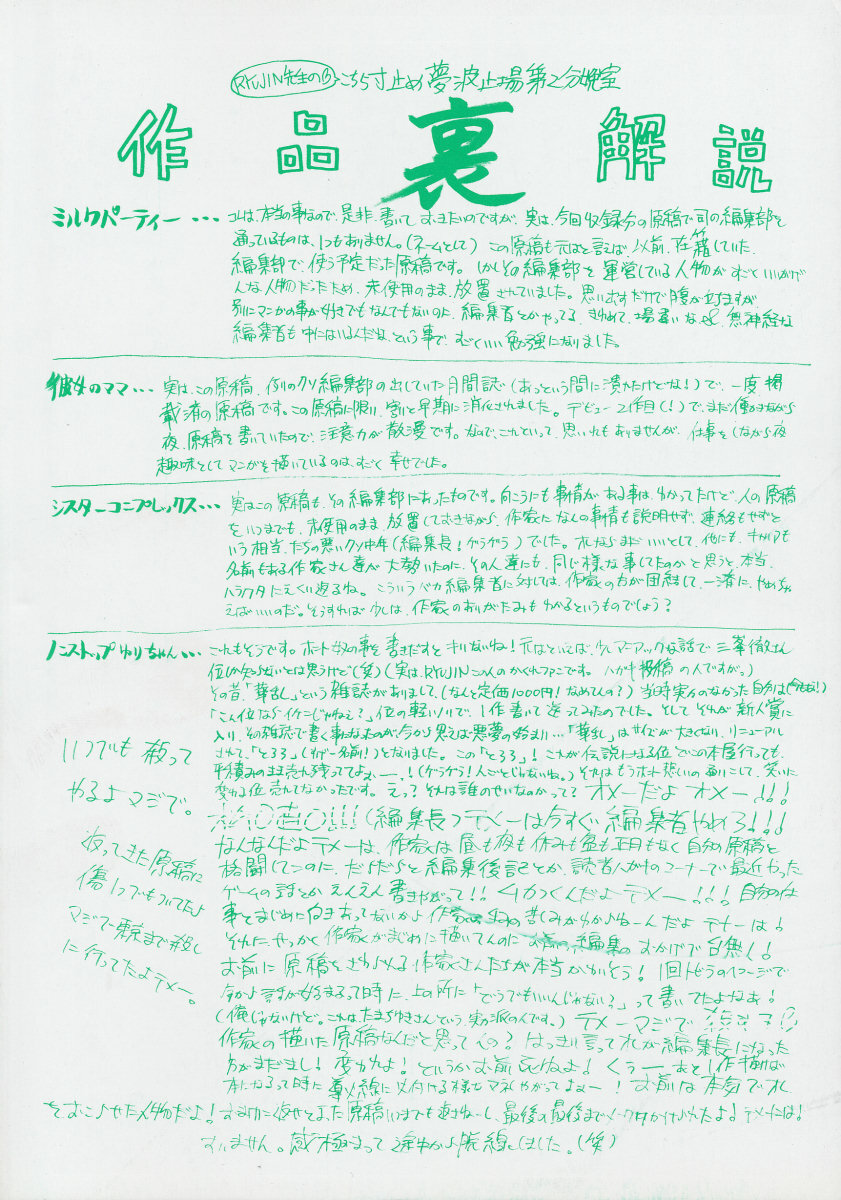 RYUJIN先生の
こちら寸止め夢波止場第2分娩室
作品裏解説
ミルクパーティー・・・
コレは、本当の事なので、是非、書いておきたいのですが、実は、今回収録分の原稿で司の編集部を
通っているものは、1つもありません。(ネームとして) この原稿も元はと言えば、以前、在籍していた
編集部で、使う予定だった原稿です。しかしその編集部を運営している人物がすごくいいかげ
んな人物だったため、未使用のまま、放置されていました。思い出すだけで腹が立ちますが
別にマンガの事が好きでもなんでもないのに、編集者とかやってる、きわめて、場違いな、&、無神経な
編集者も中にはいるんだな、という事で、すごくいい勉強になりました。
彼女のママ・・・
実は、この原稿、例のクソ編集部の出していた月間誌(あっという間に潰れたけどな!)で、一度掲
載済の原稿です。この原稿に限り、割と早期に消化されました。デビュー2作目(!)で、まだ働きながら
夜、原稿を書いていたので、注意力が散漫です。なので、これといって、思い入れもありませんが、仕事をしながら夜
趣味としてマンガを描いているのは、すごく幸せでした。
シスターコンプレックス・・・
実はこの原稿も、その編集部にあったものです。向こうにも事情がある事は、わかってたけど、人の原稿
をいつまでも、未使用のまま、放置しておきながら、作家になんの事情も説明せず、連絡もせずと
いう相当、たちの悪いクソ中年(編集長!ゲラゲラ)でした。オレならまだいいとして、他にも、キャリアも
名前もある作家さん達が大勢いたのに、その人達にも、同じ様な事してたのかと思うと、本当、
ハラワタにえくり返るね。こういうバカ編集者に対しては、作家の方が団結して、一斉に、やめちゃ
えばいいのだ。そうすれば少しは、作家のありがたみもわかるというものでしょう?
ノンストップゆりちゃん・・・
これもそうです。ホント奴の事を書きだすとキリないね!元はといえば、少しマニアックな話で三峯徹さん
位しか知らないとは思うけど(笑)(実は、RYUJINこの人のかくれファンです。ハガキ投稿の人ですが。)
その昔「華乱」という雑誌がありまして、(なんと定価1000円!なめてんの?)当時実力のなかった自分は(今もか!)
「こん位ならイケンじゃねえ?」位の軽いノリで、1作書いて送ってみたのでした。そしてそれが新人賞に
入り、その雑誌で書く事になったのが今から思えば悪夢の始まり…「華乱」は
されて、「とろろ」(すげー名前!)となりました。この「とろろ」!これが伝説になる位、どこの本屋行っても、
平積みのまま売れ残っててよぉー、!(ゲラゲラ!人ごとじゃないね。)それはもうホント
変わる位売れてなかったです。えっ?それは誰のせいなのかって?オメーだよオメー!!!
(編集長)テメーは今すぐ編集者やめろ!!!
なんなんだよテメーは、作家は昼も夜も休みも盆も正月もなく自分の原稿と
格闘してんのに、だらだらと編集後記とか、読者ハガキのコーナーで最近やった
ゲームの話とかえんえん書きやがって!!ムカつくんだよテメー!!!自分の仕
事とまじめに向きあってないから作家の苦しみがわからねーんだよテメーは!
それに、せっかく作家がまじめに描いてんのにお前の編集のおかげで台無し!
お前に原稿をさわられる作家さんたちが本当かわいそう!1回トビラのページで
今から話が始まるって時に、上の所に「どうでもいいんじゃない?」って書いてたよなぁ!
(俺じゃないけど。これはたまちゆきさんという実力派の人です。)テメーマジで
作家の描いた原稿なんだと思ってんの?はっきし言ってオレが編集長になった
方がまだまし!変われよ!というかお前死ねよ!くぅーあと1作描けば
本になるって時に お前は本気でオレ
をおこらせた人物だよ!
すいません。感極まって途中から脱線しました。(笑)
いつでも殺って
やるよマジで。
返ってきた原稿に
傷1つでもついてたら
マジで東京まで殺し
に行ってたよテメー。